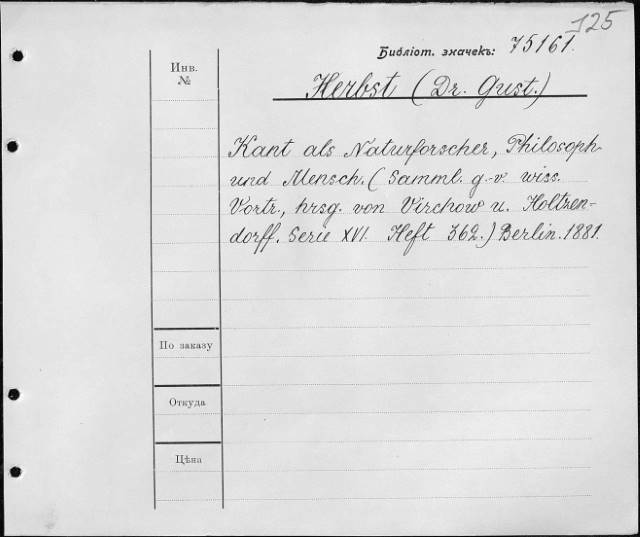 125
Библіот. значекъ: 75161.
Инв.
№
Herbst (Dr. Gust.)
Kant als Naturforscher, Philosoph
und Mensch. (Samml. g.-v. wiss.
Vortr., hrsg. von Virchow u. Holtzen-
dorff. Serie XVI. Heft 362.) Berlin. 1881.
По заказу
Откуда
Цѣна